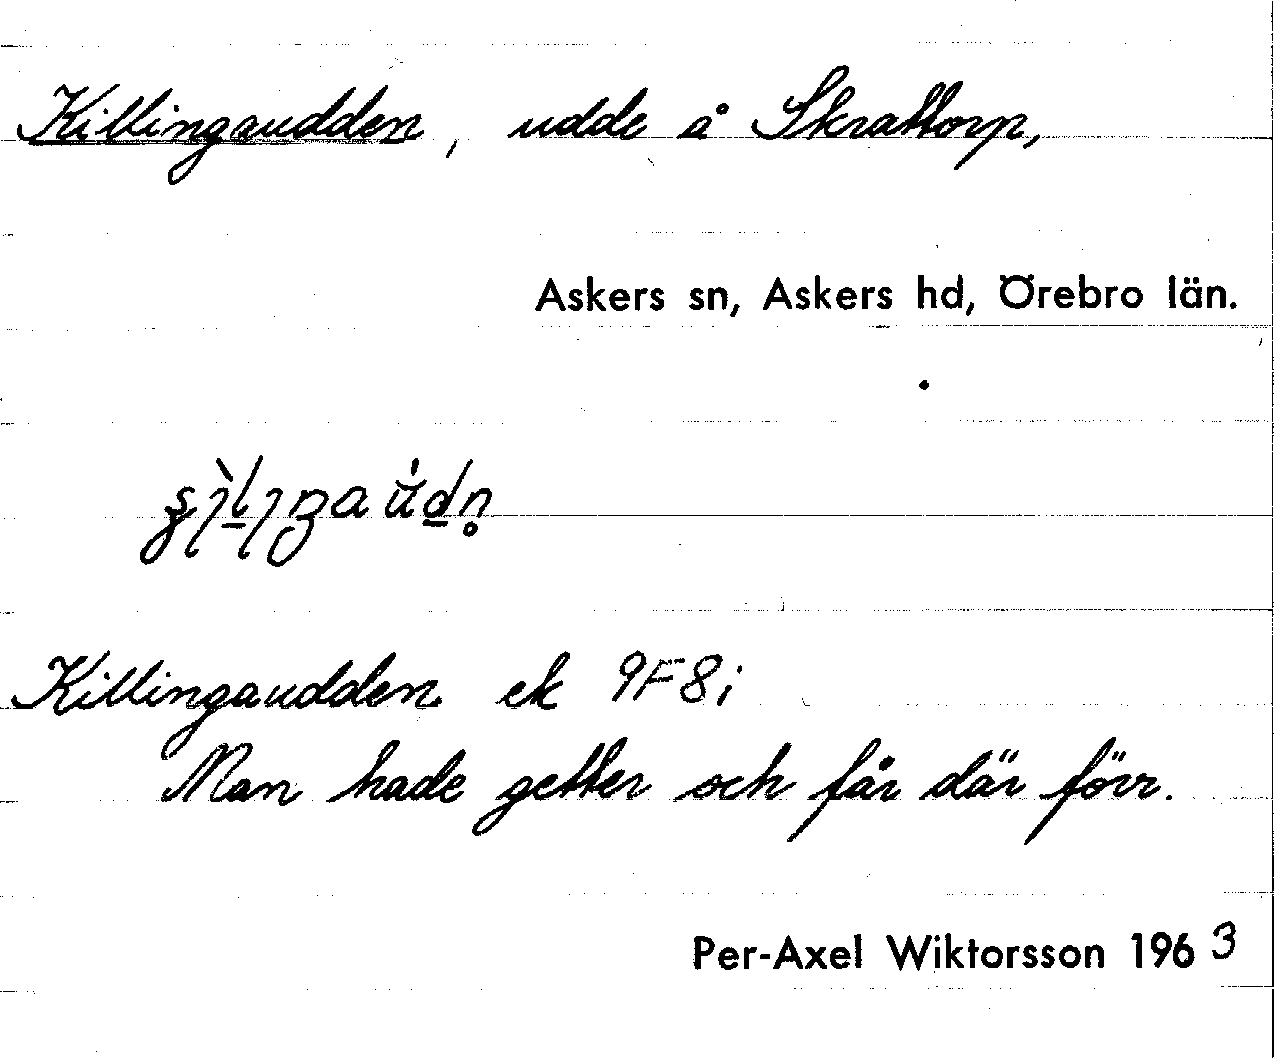 Killingaudden, udde å Skrattorp,
Askers sn, Askers hd, Örebro län.
Killingaudden ek 9F8i
Man hade getter och får där förr.
Per-Axel Wiktorsson 1963